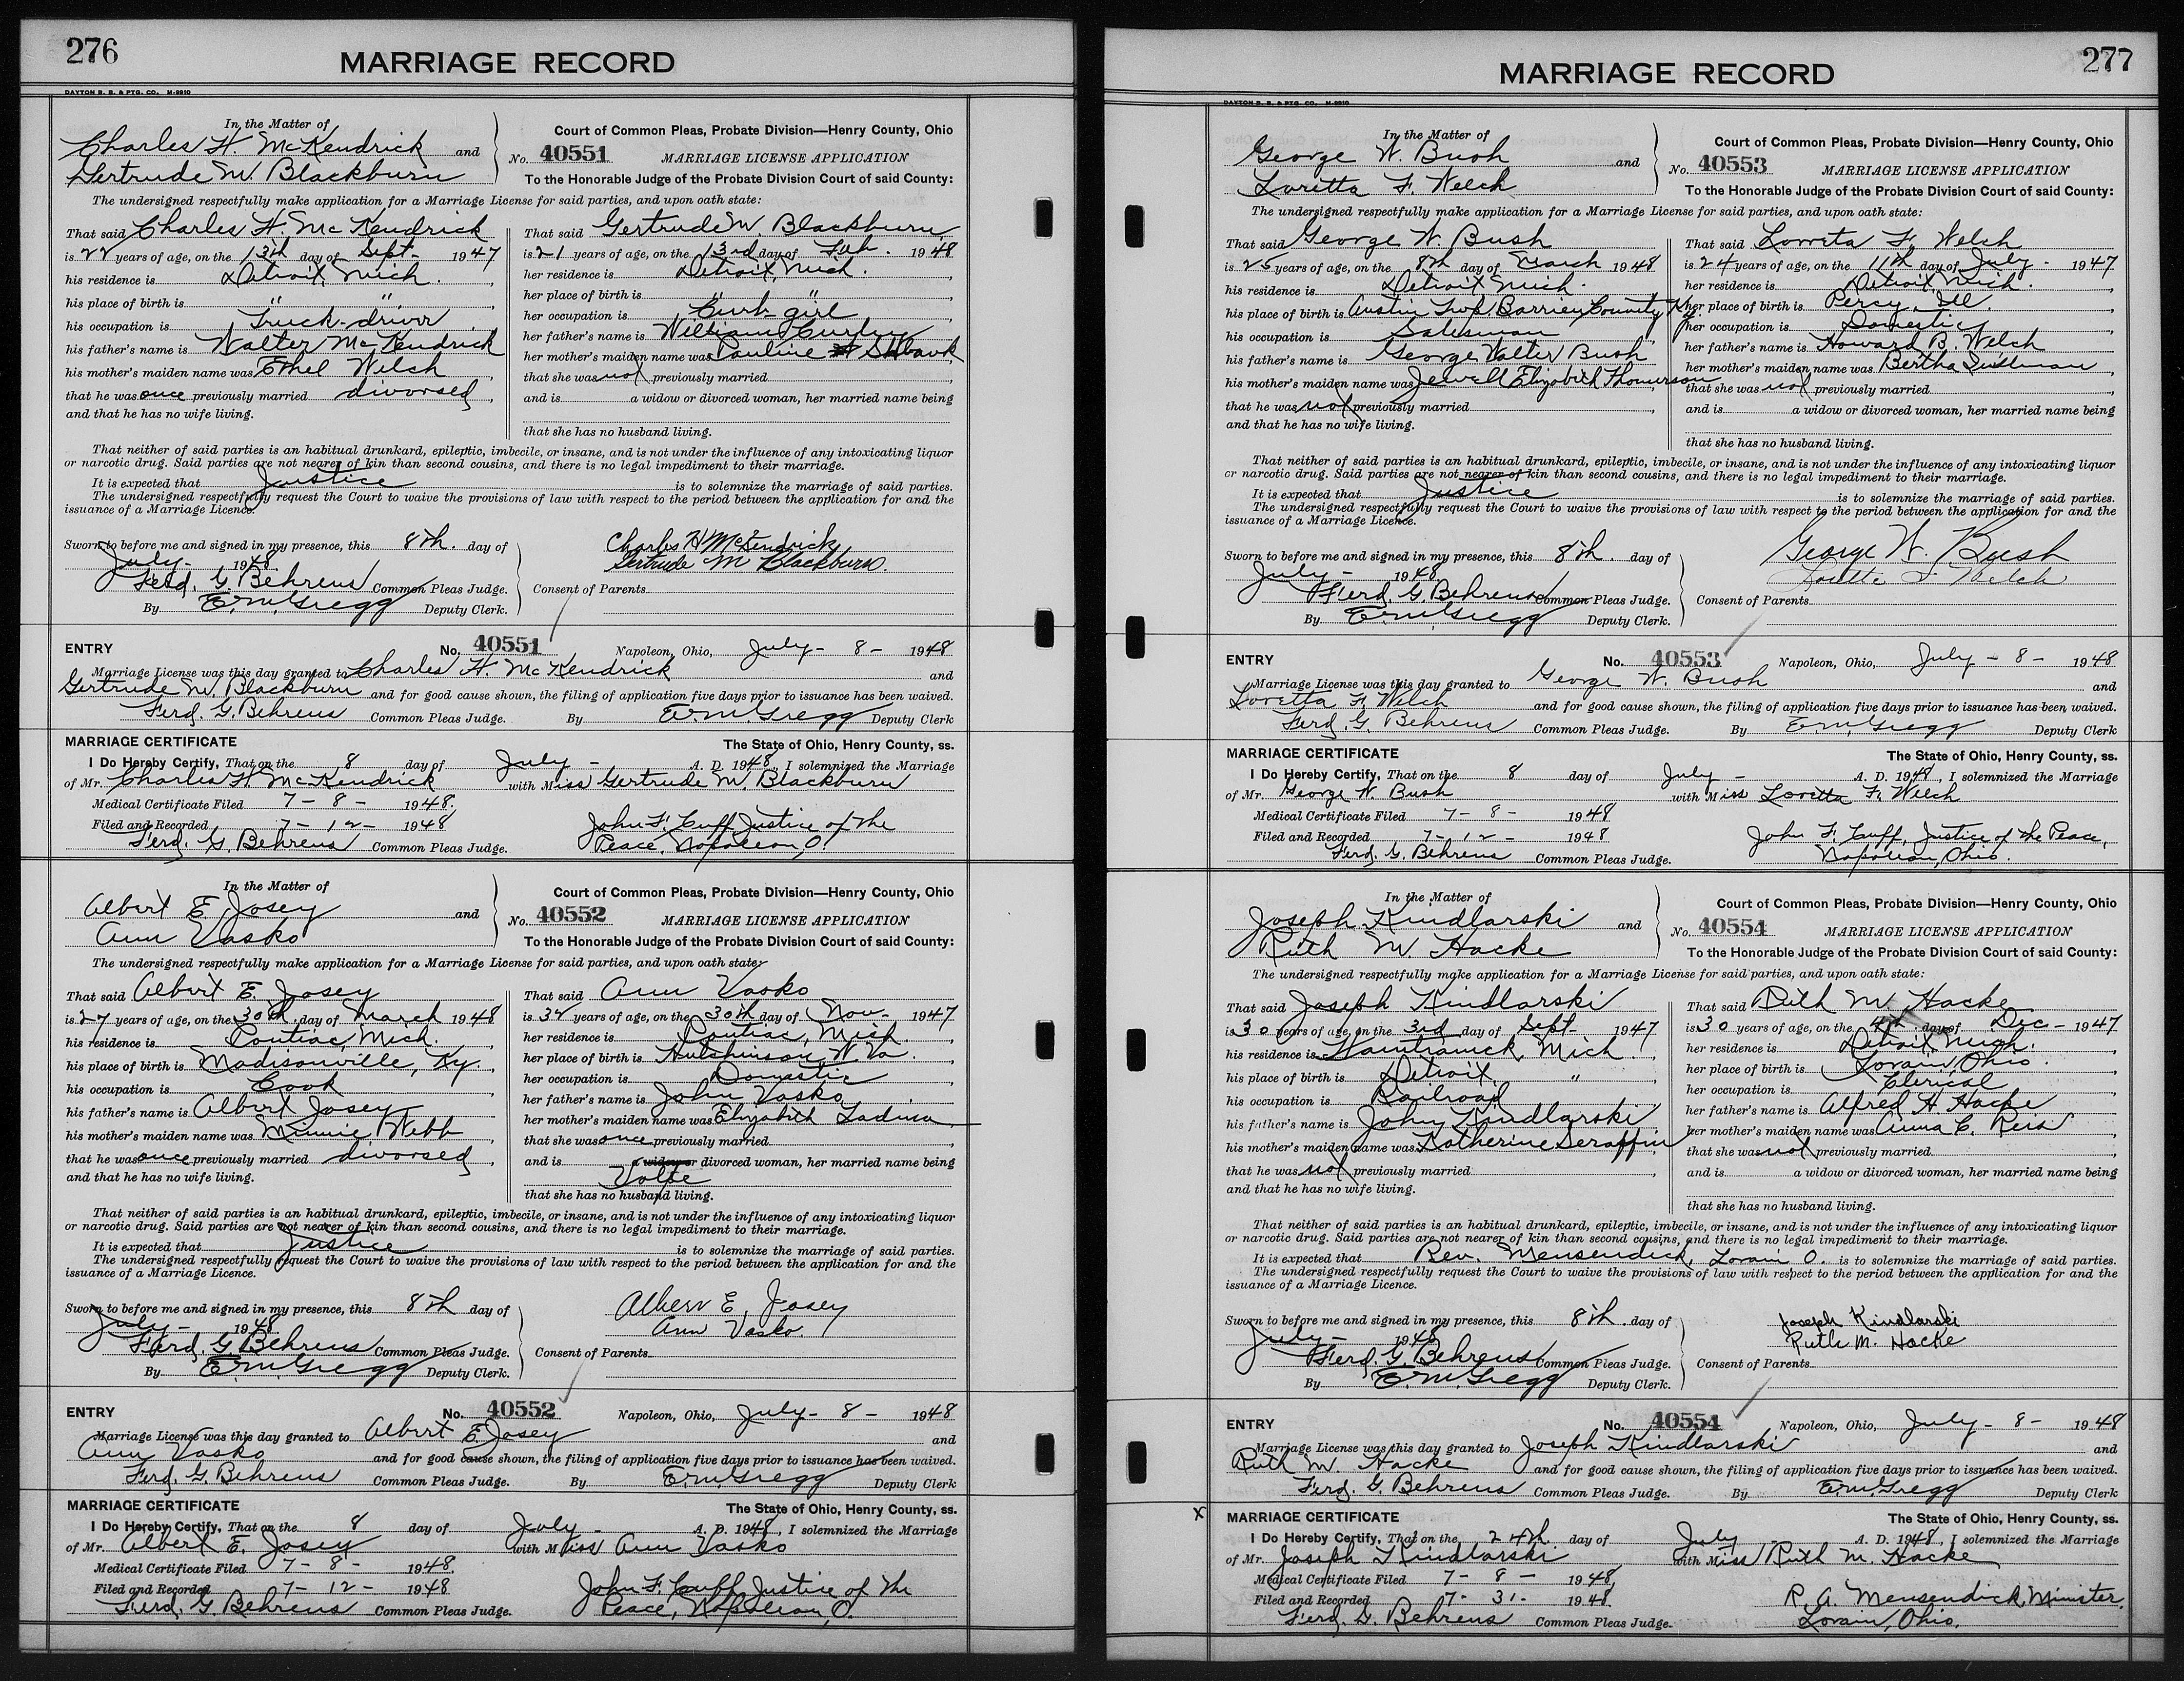 276
MARRIAGE RECORD
DAYTON B. B. & PTG. CO. M-9910
In the Matter of
Charles H. McKendrick and
Gertrude M. Blackburn
Court of Common Pleas, Probate Division—Henry County, Ohio
No. 40551 MARRIAGE LICENSE APPLICATION
To the Honorable Judge of the Probate Division Court of said County:
The undersigned respectfully make application for a Marriage License for said parties, and upon oath state:
That said Charles H. McKendrick
is 22 years of age, on the 13th day of Sept- 1947
his residence is Detroit, Mich.,
his place of birth is " ",
his occupation is Truck-driver,
his father's name is Walter McKendrick
his mother's maiden name was Ethel Welch,
that he was once previously married divorsed,
and that he has no wife living.
That said Gertrude M. Blackburn,
is 21 years of age, on the 13rd day of Feb. 1948
her residence is Detroit, Mich.,
her place of birth is " ",
her occupation is Curb-girl
her father's name is William
her mother's maiden name was Pauline
that she was not previously married,
and is a widow or divorced woman, her married name being
that she has no husband living.
That neither of said parties is an habitual drunkard, epileptic, imbecile, or insane, and is not under the influence of any intoxicating liquor
or narcotic drug. Said parties are not nearer of kin than second cousins, and there is no legal impediment to their marriage.
It is expected that Justice is to solemnize the marriage of said parties.
The undersigned respectfully request the Court to waive the provisions of law with respect to the period between the application for and the
issuance of a Marriage Licence.
Sworn to before me and signed in my presence, this 8th. day of
July- 1948.
Ferd. G. Behrens Common Pleas Judge.
By E.M. Gregg Deputy Clerk.
Charles H McKendrick
Gertrude M Blackburn.
Consent of Parents
ENTRY No. 40551 Napoleon, Ohio, July- 8- 1948
Marriage License was this day granted to Charles H. McKendrick and
Gertrude M. Blackburn and for good cause shown, the filing of application five days prior to issuance has been waived.
Ferd. G. Behrens Common Pleas Judge. By E.M. Gregg Deputy Clerk
MARRIAGE CERTIFICATE The State of Ohio, Henry County, ss.
I Do Hereby Certify, That on the 8 day of July- A. D. 1948, I solemnized the Marriage
of Mr. Charles H. McKendrick with Miss Gertrude M. Blackburn
Medical Certificate Filed 7-8- 1948.
Filed and Recorded 7-12- 1948
Ferd. G. Behrens Common Pleas Judge.
John F. Cuff Justice of the
Peace, Napoleon, O.
In the Matter of
Albert E. Josey and
Ann Vasko
Court of Common Pleas, Probate Division—Henry County, Ohio
No. 40552 MARRIAGE LICENSE APPLICATION
To the Honorable Judge of the Probate Division Court of said County:
The undersigned respectfully make application for a Marriage License for said parties, and upon oath state:
That said Albert E. Josey
is 27 years of age, on the 30th day of March 1948
his residence is Pontiac Mich.,
his place of birth is Madisonville, Ky.
his occupation is Cook,
his father's name is Albert Josey,
his mother's maiden name was Minnie Webb,
that he was once previously married divorsed,
and that he has no wife living.
That said Ann Vasko
is 32 years of age, on the 30th day of Nov- 1947
her residence is Pontiac, Mich.,
her place of birth is Hutchinson W. Va.,
her occupation is Domestic,
her father's name is John Vasko,
her mother's maiden name was Elizabeth
that she was once previously married,
and is a widow or divorced woman, her married name being
Volpe
that she has no husband living.
That neither of said parties is an habitual drunkard, epileptic, imbecile, or insane, and is not under the influence of any intoxicating liquor
or narcotic drug. Said parties are not nearer of kin than second cousins, and there is no legal impediment to their marriage.
It is expected that Justice is to solemnize the marriage of said parties.
The undersigned respectfully request the Court to waive the provisions of law with respect to the period between the application for and the
issuance of a Marriage Licence.
Sworn to before me and signed in my presence, this 8th day of
July- 1948.
Ferd. G. Behrens Common Pleas Judge.
By E.M. Gregg Deputy Clerk.
Albert E. Josey
Ann Vasko
Consent of Parents
ENTRY No. 40552 Napoleon, Ohio, July- 8- 1948
Marriage License was this day granted to Albert E. Josey and
Ann Vasko and for good cause shown, the filing of application five days prior to issuance has been waived.
Ferd. G. Behrens Common Pleas Judge. By E.M. Gregg Deputy Clerk
MARRIAGE CERTIFICATE The State of Ohio, Henry County, ss.
I Do Hereby Certify, That on the 8 day of July- A. D. 1948, I solemnized the Marriage
of Mr. Albert E. Josey with Miss Ann Vasko
Medical Certificate Filed 7-8- 1948.
Filed and Recorded 7-12- 1948
Ferd. G. Behrens Common Pleas Judge.
John F. Cuff, Justice of the
Peace, Napoleon, O.
277
MARRIAGE RECORD
DAYTON B. B. & PTG. CO. M-9910
In the Matter of
George W. Bush and
Loretta F. Welch
Court of Common Pleas, Probate Division—Henry County, Ohio
No. 40553 MARRIAGE LICENSE APPLICATION
To the Honorable Judge of the Probate Division Court of said County:
The undersigned respectfully make application for a Marriage License for said parties, and upon oath state:
That said George W. Bush
is 25 years of age, on the 8th day of March 1948
his residence is Detroit Mich.,
his place of birth is Austin Twp. Barrien County Ky.
his occupation is Salesman,
his father's name is George Walter Bush
his mother's maiden name was Jewell Elizabeth Thomerson
that he was not previously married,
and that he has no wife living.
That said Lorreta F. Welch
is 24 years of age, on the 11th day of July- 1947
her residence is Detroit, Mich.,
her place of birth is Percy, Ill.,
her occupation is Domestic,
her father's name is Howard B. Welch
her mother's maiden name was Bertha
that she was not previously married,
and is a widow or divorced woman, her married name being
that she has no husband living.
That neither of said parties is an habitual drunkard, epileptic, imbecile, or insane, and is not under the influence of any intoxicating liquor
or narcotic drug. Said parties are not nearer of kin than second cousins, and there is no legal impediment to their marriage.
It is expected that Justice is to solemnize the marriage of said parties.
The undersigned respectfully request the Court to waive the provisions of law with respect to the period between the application for and the
issuance of a Marriage Licence.
Sworn to before me and signed in my presence, this 8th. day of
July- 1948.
Ferd. G. Behrens Common Pleas Judge.
By E.M. Gregg Deputy Clerk.
George W. Bush
Loretta F Welch
Consent of Parents
ENTRY No. 40553 Napoleon, Ohio, July- 8- 1948
Marriage License was this day granted to George W. Bush and
Loretta F. Welch and for good cause shown, the filing of application five days prior to issuance has been waived.
Ferd. G. Behrens Common Pleas Judge. By E.M. Gregg Deputy Clerk
MARRIAGE CERTIFICATE The State of Ohio, Henry County, ss.
I Do Hereby Certify, That on the 8 day of July- A. D. 1948, I solemnized the Marriage
of Mr. George W. Bush with Miss Loretta F. Welch
Medical Certificate Filed 7-8- 1948
Filed and Recorded 7-12- 1948
Ferd. G. Behrens Common Pleas Judge.
John F. Cuff, Justice of the Peace,
Napoleon, Ohio.
In the Matter of
Joseph Kindlarski and
Ruth M. Hacke
Court of Common Pleas, Probate Division—Henry County, Ohio
No. 40554 MARRIAGE LICENSE APPLICATION
To the Honorable Judge of the Probate Division Court of said County:
The undersigned respectfully make application for a Marriage License for said parties, and upon oath state:
That said Joseph Kindlarski
is 30 years of age, on the 3rd day of Sept- 1947
his residence is Hamtramck, Mich.,
his place of birth is Detroit, ",
his occupation is Railroad,
his father's name is John Kindlarski,
his mother's maiden name was Katherine Seraffin
that he was not previously married,
and that he has no wife living.
That said Ruth M. Hacke
is 30 years of age, on the 4th day of Dec- 1947
her residence is Detroit Mich.,
her place of birth is Lorain, Ohio.,
her occupation is Clerical,
her father's name is Alfred H Hacke,
her mother's maiden name was Anna C. Reis,
that she was not previously married,
and is a widow or divorced woman, her married name being
that she has no husband living.
That neither of said parties is an habitual drunkard, epileptic, imbecile, or insane, and is not under the influence of any intoxicating liquor
or narcotic drug. Said parties are not nearer of kin than second cousins, and there is no legal impediment to their marriage.
It is expected that Rev. Mensendick, Lorain O. is to solemnize the marriage of said parties.
The undersigned respectfully request the Court to waive the provisions of law with respect to the period between the application for and the
issuance of a Marriage Licence.
Sworn to before me and signed in my presence, this 8th. day of
July- 1948
Ferd. G. Behrens Common Pleas Judge.
By E.M. Gregg Deputy Clerk.
Joseph Kindlarski
Ruth M. Hacke
Consent of Parents
ENTRY No. 40554 Napoleon, Ohio, July- 8- 1948
Marriage License was this day granted to Joseph Kindlarski and
Ruth M. Hacke and for good cause shown, the filing of application five days prior to issuance has been waived.
Ferd. G. Behrens Common Pleas Judge. By E.M. Gregg Deputy Clerk
x MARRIAGE CERTIFICATE The State of Ohio, Henry County, ss.
I Do Hereby Certify, That on the 24th. day of July A. D. 1948, I solemnized the Marriage
of Mr. Joseph Kindlarski with Miss Ruth M. Hacke
Medical Certificate Filed 7-8- 1948,
Filed and Recorded 7-31- 1948.
Ferd. G. Behrens Common Pleas Judge.
R. A. Mensendick, Minister.
Lorain, Ohio.